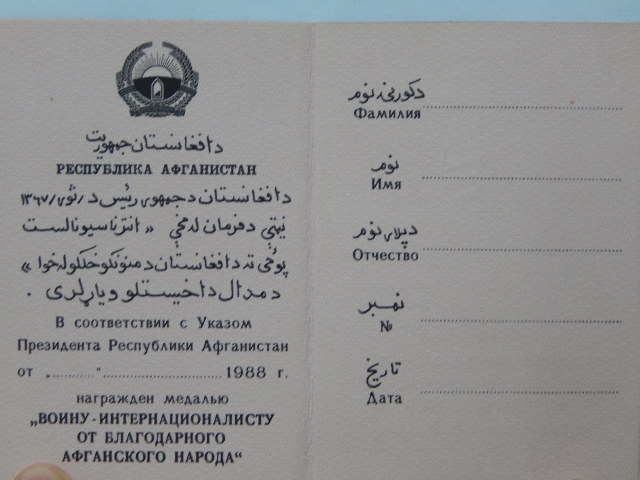 د افغانستان جمهوریت
РЕСПУБЛИКА АФГАНИСТАН
د افغانستان د جمهوری رئیس د / ۱۳۶۷
نېټې د فرمان له مخې « انترناسیونالست
پوځي ته د افغانستان د منونکو خلکو له خوا »
د مدال د اخیستلو ویاړ لری .
В соответствии с Указом
Президента Республики Афганистан
от „..........“.............................. 1988 г.
награжден медалью
„ВОИНУ-ИНТЕРНАЦИОНАЛИСТУ
ОТ БЛАГОДАРНОГО
АФГАНСКОГО НАРОДА“
د کورنۍ نوم
Фамилия
نوم
Имя
د پلار نوم
Отчество
نمبر
№
تاریخ
Дата